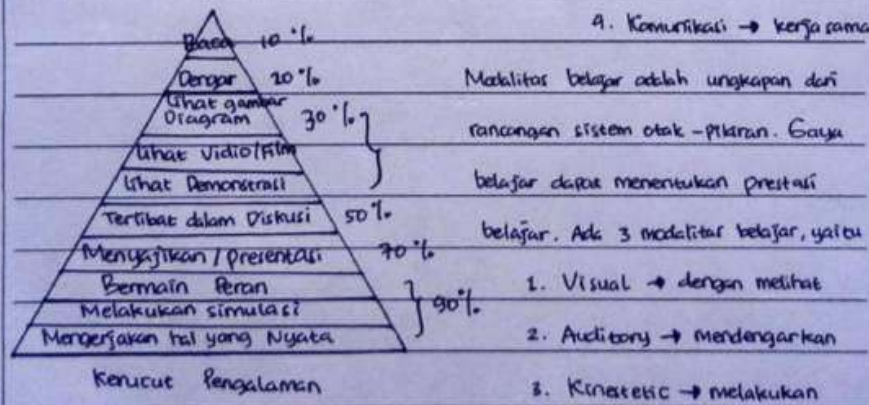 Baca 10%
Dengar 20%
Lihat gambar
Diagram 30%
Lihat Vidio/Film
Lihat Demonstrasi
Terlibat dalam Diskusi 50%
Menyajikan / presentasi 70%
Bermain Peran
Melakukan simulasi 90%
Mengerjakan hal yang Nyata
Kerucut Pengalaman
4. Komunikasi → kerja sama
Modalitas belajar adalah ungkapan dari
rancangan sistem otak - pikiran. Gaya
belajar dapat menentukan prestasi
belajar. Ada 3 modalitas belajar, yaitu
1. Visual → dengan melihat
2. Auditory → mendengarkan
3. Kinestetic → melakukan